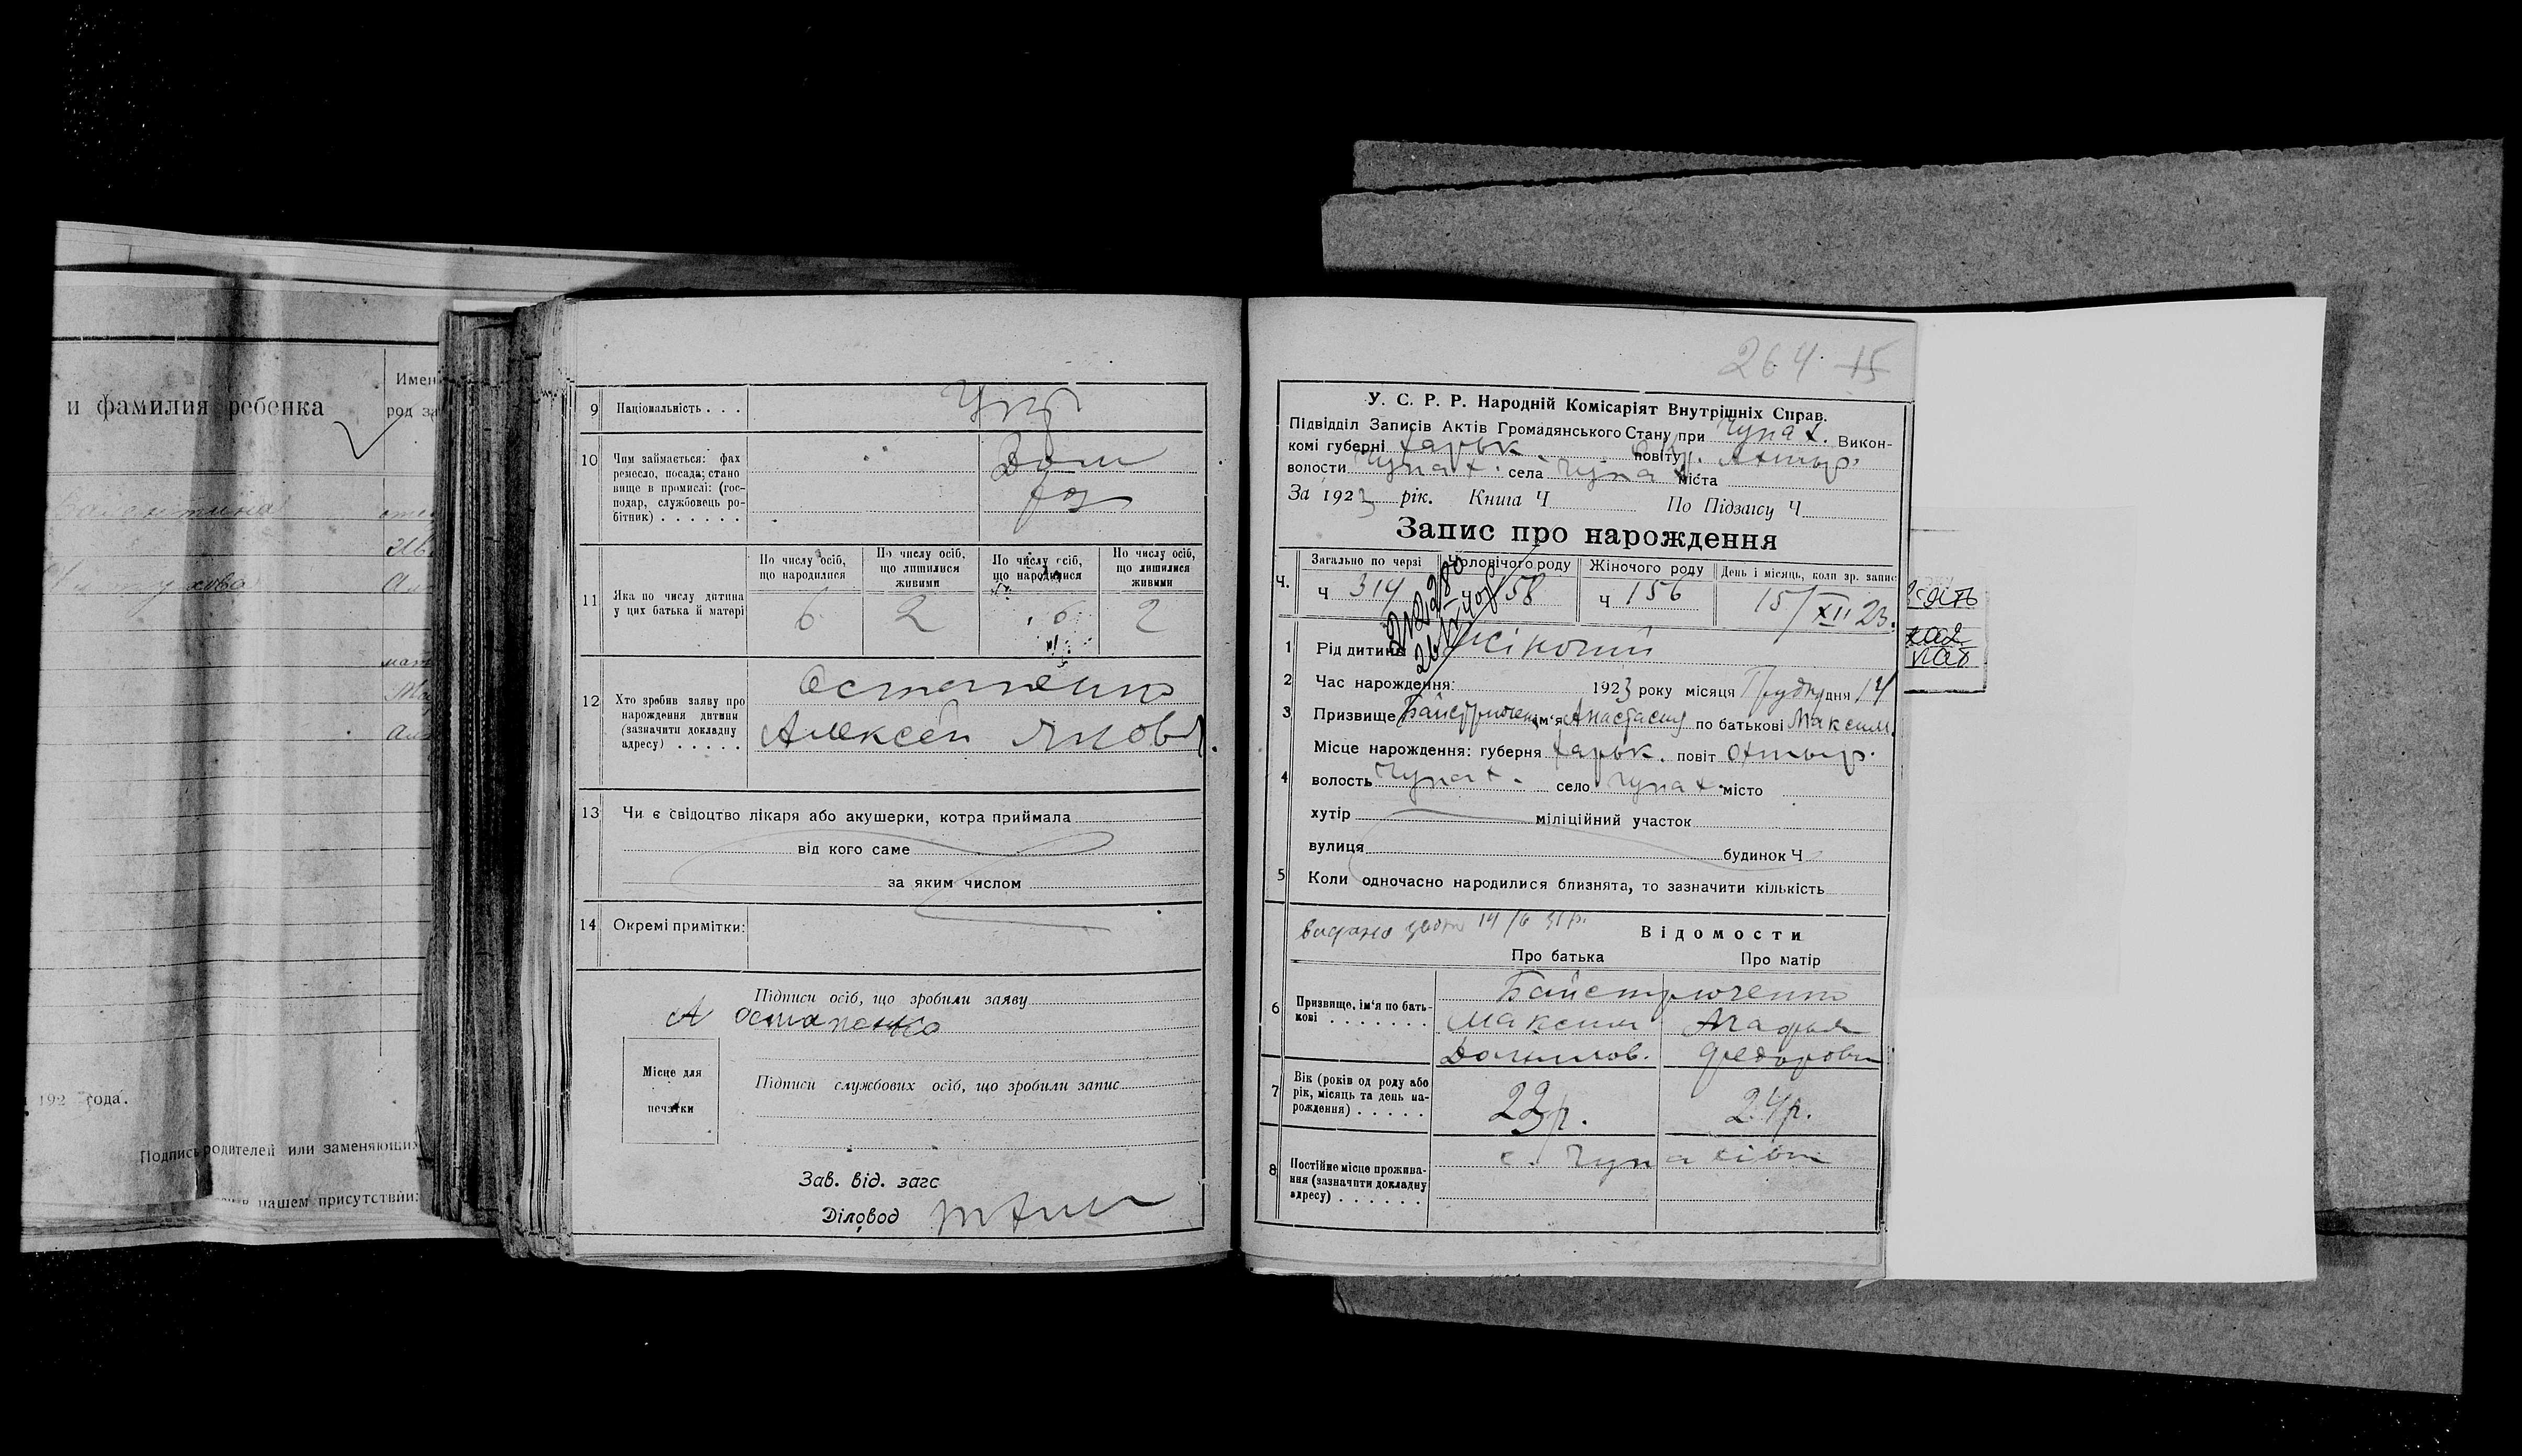 и фамилия ребенка
Имен
род за
192 года.
Подпись родителей или заменяющих
нашем присутствии:
9 Національність . . . Укр
10 Чим займається: фах
ремесло, посада; стано
вище в промислі: (гос-
подар, службовець ро-
бітник) . . . . . .
Дом
хоз
По числу осіб, що народилися
По числу осіб, що лишилися живими
По числу осіб, що народилися
По числу осіб, що лишилися живими
11 Яка по числу дитина
у цих батька й матері
6 2 6 2
12 Хто зробив заяву про
нарождення дитини
(зазначити докладну
адресу) . . . . .
Остапенко
Алексей Яковл.
13 Чи є свідоцтво лікаря або акушерки, котра приймала
від кого саме
за яким числом
14 Окремі примітки:
Підписи осіб, що зробили заяву
А Остапенко
Місце для
печатки
Підписи службових осіб, що зробили запис
Зав. від. загс
Діловод
264. 15
У. С. Р. Р. Народній Комісаріят Внутрішніх Справ.
Підвідділ Записів Актів Громадянського Стану при Чупах. Викон-
комі губерні Харьк. повіту Ахтыр.
волости Чупах. села Чупах міста
За 1923 рік. Книга Ч По Підзагсу Ч
Запис про нарождення
Загально по черзі Чоловічого роду Жіночого роду День і місяць, коли зр. запис
Ч. Ч 314 158 Ч 156 15/XII 23.
1 Рід дитини Жіночий
2 Час нарождення: 1923 року місяця Грудня дня 14
3 Призвище Байстрюченко ім'я Анастасия по батькові Максим.
Місце нарождення: губерня Харьк. повіт Охтыр.
4 волость Чупах. село Чупах. місто
хутір міліційний участок
вулиця будинок Ч
5 Коли одночасно народилися близнята, то зазначити кількість
видано 14/6 31 р.
Відомости
Про батька Про матір
6 Призвище, ім'я по бать-
кові . . . . . . .
Байстрюченко
Максим Агафья
Данилов. Федоровн
7 Вік (років од роду або
рік, місяць та день на-
рождення) . . . . .
22 р. 24 р.
8 Постійне місце прожива-
ння (зазначити докладну
адресу) . . . . . .
с. Чупахівка